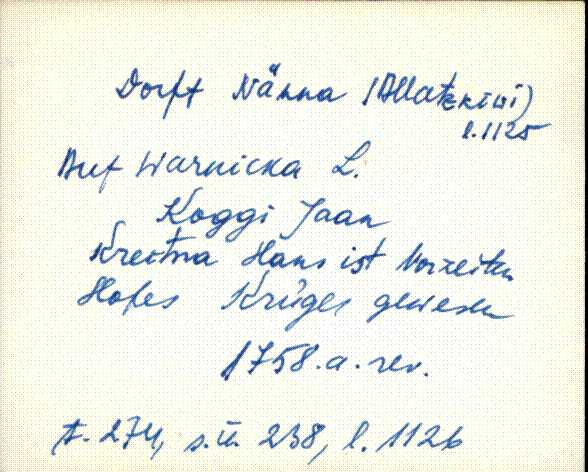 Dorft Nänna (Allatzkiwi)
l. 1125
Auf Warnicka L.
Koggi Jaan
Hans ist Vorzeiten
Hofes Krüger gewesen
1758. a. rev.
t. 274, s.ü. 238, l. 1126